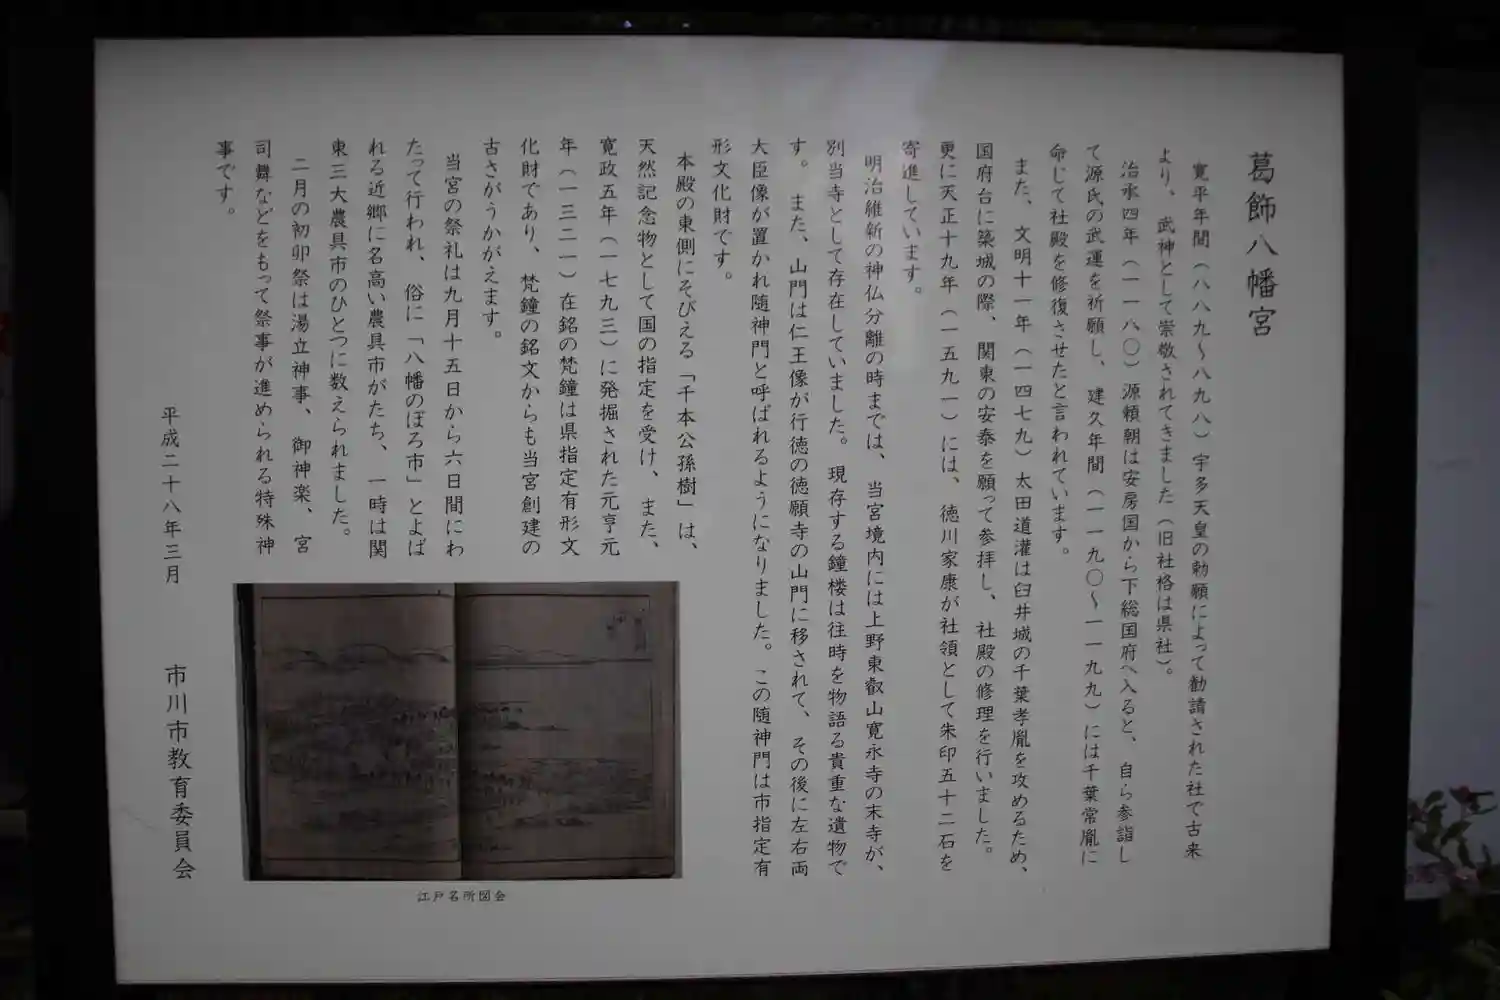 葛飾八幡宮
寛平年間（八八九～八九八）宇多天皇の勅願によって勧請された社で古来
より、武神として崇敬されてきました（旧社格は県社）。
治承四年（一一八〇）源頼朝は安房国から下総国府へ入ると、自ら参詣し
て源氏の武運を祈願し、建久年間（一一九〇～一一九九）には千葉常胤に
命じて社殿を修復させたと言われています。
また、文明十一年（一四七九）太田道灌は臼井城の千葉孝胤を攻めるため、
国府台に築城の際、関東の安泰を願って参拝し、社殿の修理を行いました。
更に天正十九年（一五九一）には、徳川家康が社領として朱印五十二石を
寄進しています。
明治維新の神仏分離の時までは、当宮境内には上野東叡山寛永寺の末寺が、
別当寺として存在していました。現存する鐘楼は往時を物語る貴重な遺物で
す。また、山門は仁王像が行徳の徳願寺の山門に移されて、その後に左右両
大臣像が置かれ随神門と呼ばれるようになりました。この随神門は市指定有
形文化財です。
本殿の東側にそびえる「千本公孫樹」は、
天然記念物として国の指定を受け、また、
寛政五年（一七九三）に発掘された元亨元
年（一三二一）在銘の梵鐘は県指定有形文
化財であり、梵鐘の銘文からも当宮創建の
古さがうかがえます。
当宮の祭礼は九月十五日から六日間にわ
たって行われ、俗に「八幡のぼろ市」とよば
れる近郷に名高い農具市がたち、一時は関
東三大農具市のひとつに数えられました。
二月の初卯祭は湯立神事、御神楽、宮
司舞などをもって祭事が進められる特殊神
事です。
平成二十八年三月
市川市教育委員会
江戸名所図会